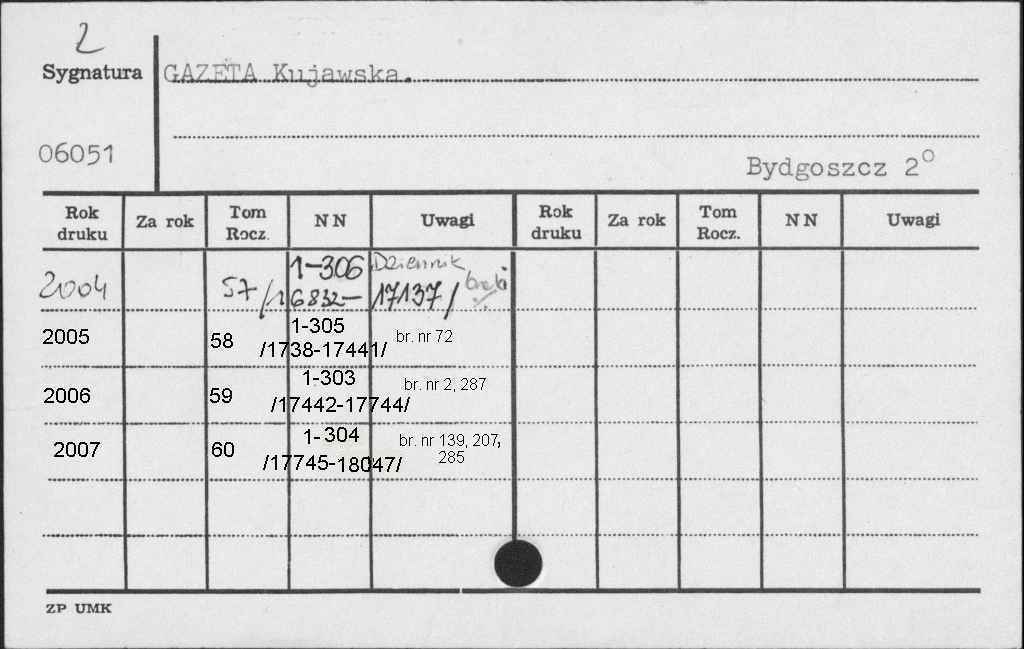 2
Sygnatura GAZETA Kujawska.
06051
Bydgoszcz 2°
Rok druku Za rok Tom Rocz. N N Uwagi Rok druku Za rok Tom Rocz. N N Uwagi
2004 57 1-306 Dziennik
/16832-17137/ braki
2005 58 1-305 br. nr 72
/1738-17441/
2006 59 1-303 br. nr 2, 287
/17442-17744/
2007 60 1-304 br. nr 139, 207,
/17745-18047/ 285
ZP UMK